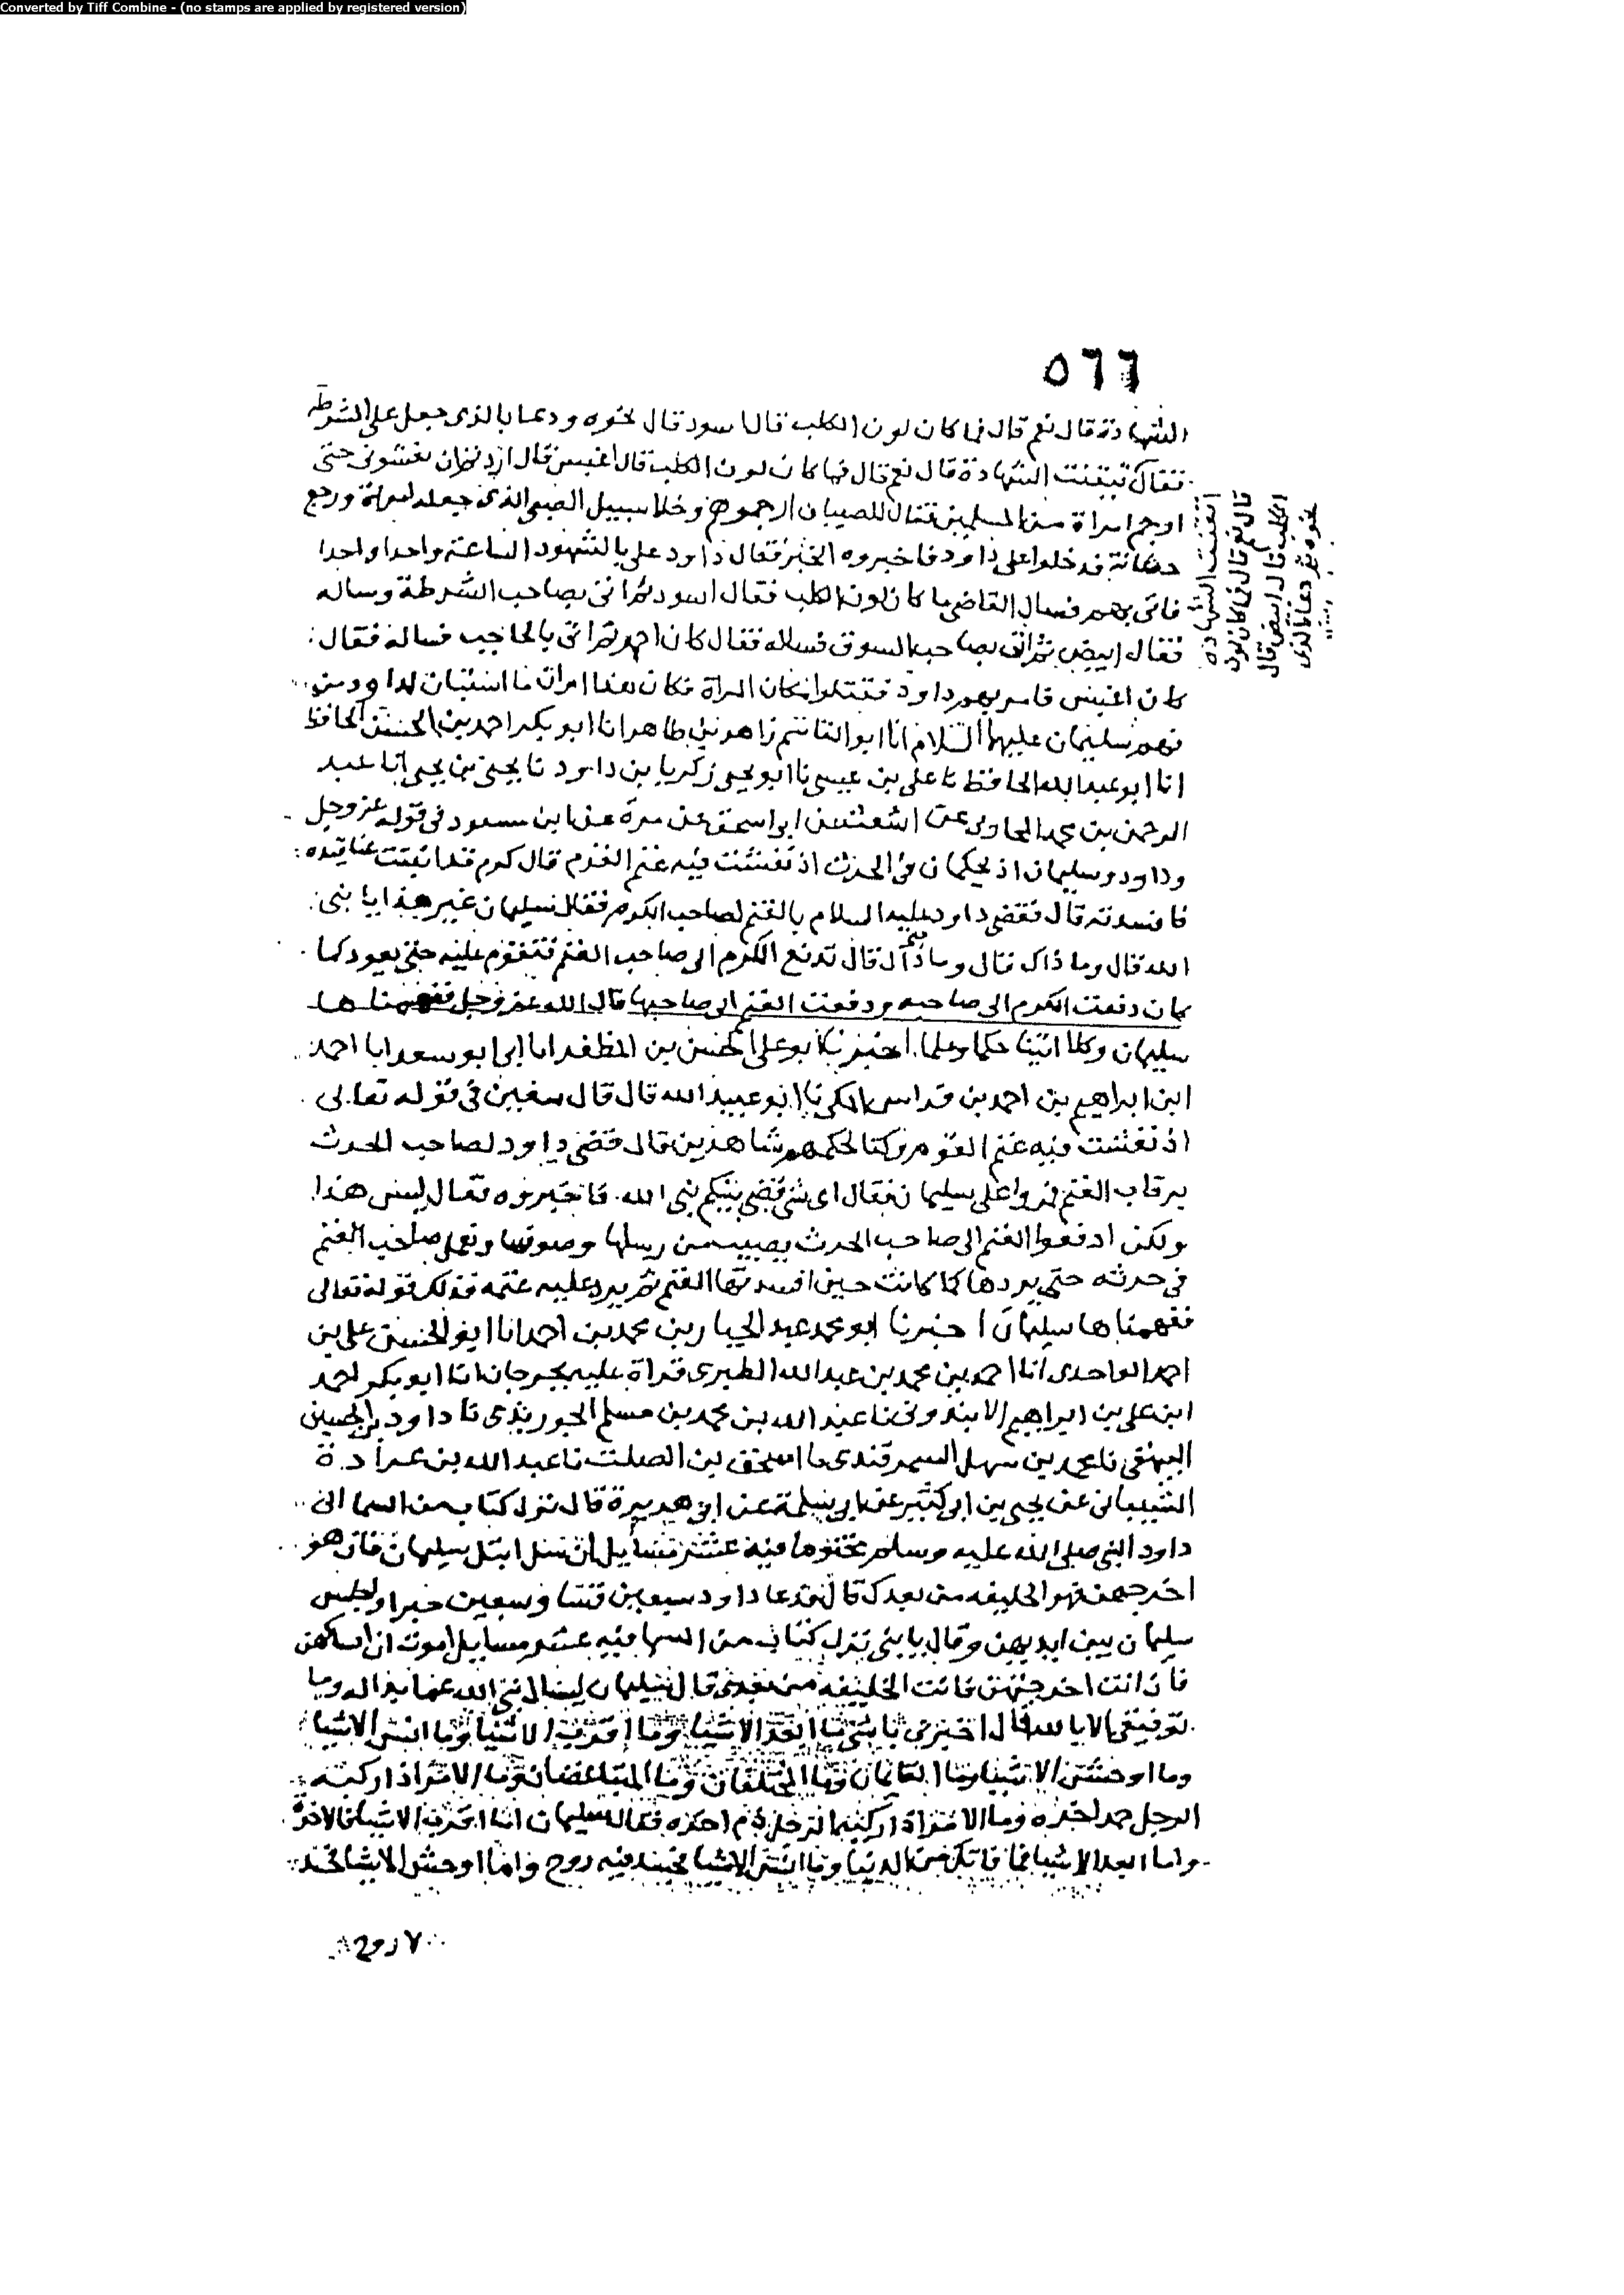 Converted by Tiff Combine - (no stamps are applied by registered version)
٥٦٦
الشهادة قال نعم قال فما كان لون الكلب قال اسود قال نحوه ودعا بالذي جعل على الشرطة
فقال تيقنت الشهادة قال نعم قال فما كان لون الكلب قال اغبس قال اردتم ان تغشوني حتى
ارجم امراة من المسلمين فقال للصبيان ارجموهم وخلا سبيل الصبي الذي جعله امراة ورجع
مكانه فدخلوا على داود فاخبروه الخبر فقال داود علي بالشهود الساعة واحدا واحدا
فاتي بهم فسال القاضي ما كان لون الكلب فقال اسود ثم اتي بصاحب الشرطة وساله
فقال ابيض ثم اتي بصاحب السوق فساله فقال كان احمر ثم اتي بالحاجب فساله فقال
كان اغبس فامر بهم داود فقتلوا مكان المراة فكان هذا اول ما استبان لداود من
فهم سليمان عليهما السلام انا ابو القاسم زاهر بن طاهر انا ابو بكر احمد بن الحسين الحافظ
انا ابو عبد الله الحافظ نا علي بن عيسى نا ابو يحيى زكريا بن داود نا يحيى بن يحيى انا عبد
الرحمن بن محمد المحاربي عن اشعث عن ابي اسحق عن مرة عن ابن مسعود في قوله عز وجل
وداود وسليمان اذ يحكمان في الحرث اذ نفشت فيه غنم القوم قال كرم قد انبتت عناقيده
فافسدته قال فقضى داود عليه السلام بالغنم لصاحب الكرم فقال سليمان غير هذا يا نبي
الله قال وما ذاك قال وما ذاك قال تدفع الكرم الى صاحب الغنم فتقوم عليه حتى يعود كما
كان دفعت الكرم الى صاحبه ودفعت الغنم الى صاحبها قال الله عز وجل ففهمناها
سليمان وكلا اتينا حكما وعلما اخبرنا ابو علي الحسن بن المظفر انا ابي ابو سعد انا احمد
ابن ابراهيم بن احمد بن فراس المكي نا ابو عبيد الله قال قال سفين في قوله تعالى
اذ نفشت فيه غنم القوم وكنا لحكمهم شاهدين قال قضى داود لصاحب الحرث
برقاب الغنم فمروا على سليمان فقال اي شي قضى بينكم نبي الله فاخبروه فقال ليس هذا
ولكن ادفعوا الغنم الى صاحب الحرث يصيب من رسلها وصوفها ويعمل صاحب الغنم
في حرثه حتى يردها كما كانت حين افسدتها الغنم ثم يرد عليه غنمه فذلك قوله تعالى
ففهمناها سليمان اخبرنا ابو محمد عبد الجبار بن محمد بن احمد انا ابو الحسن علي بن
احمد الواحدي انا احمد بن محمد بن عبد الله الطبري قراة عليه بجرجان انا ابو بكر احمد
ابن علي بن ابراهيم نا عبد الله بن محمد بن مسلم الجوربذي نا داود بن الحسين
البيهقي نا محمد بن سهل السمرقندي نا اسحق بن الصلت نا عبد الله بن عرادة
الشيباني عن يحيى بن ابي كثير عن ابي سلمة عن ابي هريرة قال نزل كتاب من السما الى
داود النبي صلى الله عليه وسلم مختوما فيه عشر مسايل ان سل ابنك سليمان فان هو
اخرجهن فهو الخليفة من بعدك قال فدعا داود سبعين قسا وسبعين حبرا واجلس
سليمان بين ايديهن وقال يا بني نزل كتاب من السما فيه عشر مسايل امرت ان اسالكهن
فان انت اخرجتهن فانت الخليفة من بعدي قال سليمان ليسال نبي الله عما بدا له وما
توفيقي الا بالله قال اخبرني يا بني ما ابعد الاشيا وما اقرب الاشيا وما انس الاشيا
وما اوحش الاشيا وما القايمان وما المختلفان وما المتباغضان وما الامر اذا ركبه
الرجل حمد اخره وما الامر اذا ركبه الرجل ذم اخره فقال سليمان اما اقرب الاشيا فالاخرة
واما ابعد الاشيا فما فاتك من الدنيا واما انس الاشيا فجسد فيه روح واما اوحش الاشيا فجسد
اتقنت الشهادة
قال نعم قال فما كان لون
الكلب قال ابيض قال
نحوه ثم دعا بالذي